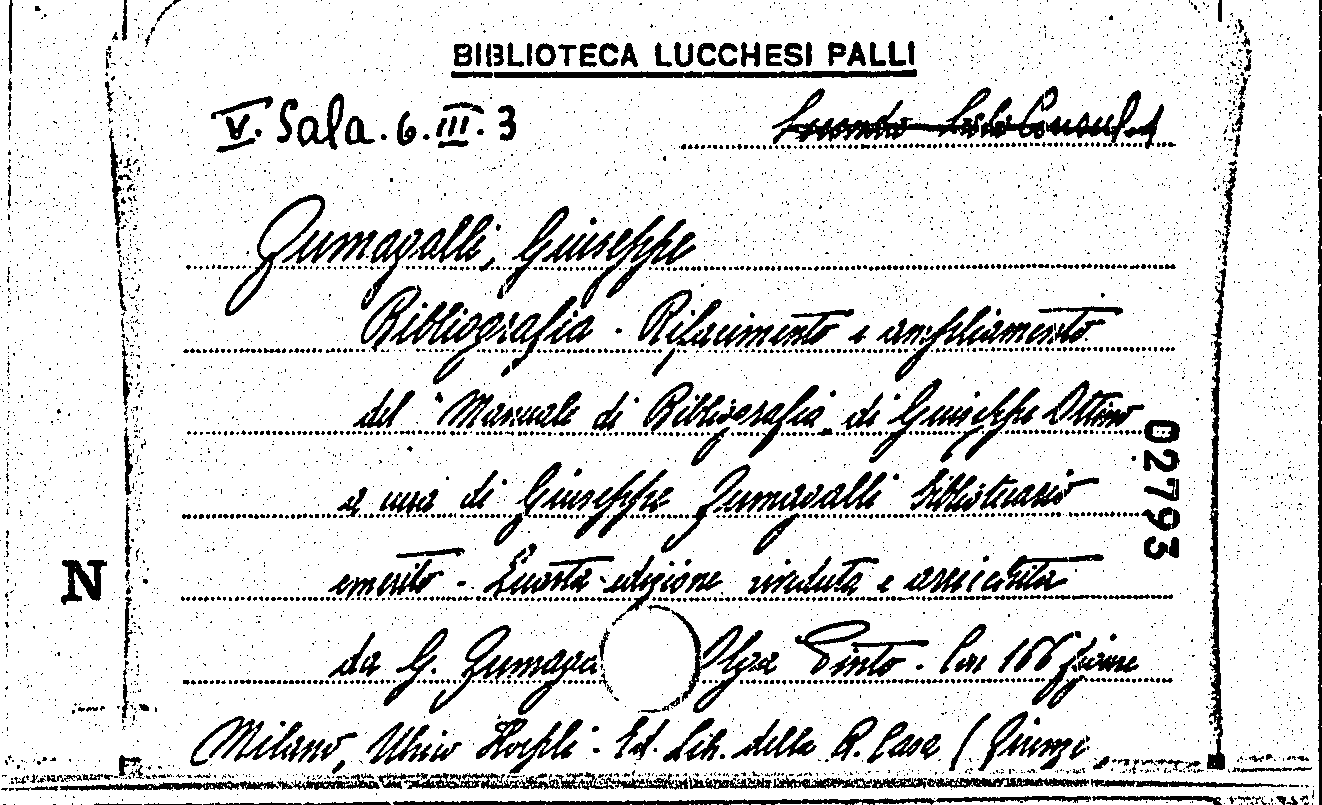 BIBLIOTECA LUCCHESI PALLI
V. Sala. 6. III. 3
Fumagalli, Giuseppe
Bibliografia. Rifacimento e ampliamento
del "Manuale di Bibliografia" di Giuseppe Ottino
a cura di Giuseppe Fumagalli bibliotecario
emerito - Quarta edizione riveduta e arricchita
da G. Fumaga Olga Pinto. Con 166 figure
Milano, Ulrico Hoepli. Ed. Lib. della R. Casa (Firenze
02793
N